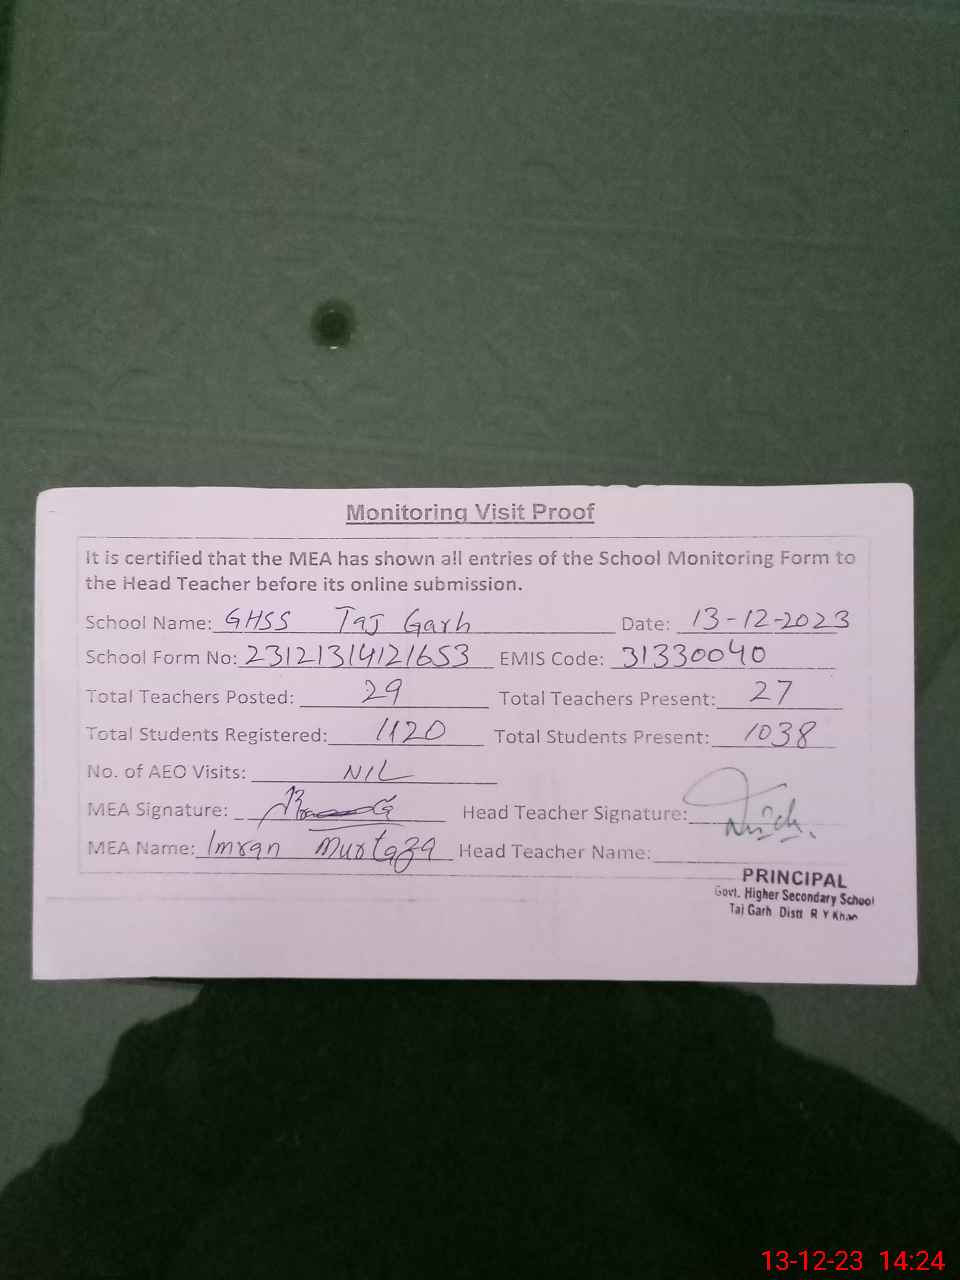 Monitoring Visit Proof
It is certified that the MEA has shown all entries of the School Monitoring Form to
the Head Teacher before its online submission.
School Name: GHSS Taj Garh Date: 13-12-2023
School Form No: 23121314121653 EMIS Code: 31330040
Total Teachers Posted: 29 Total Teachers Present: 27
Total Students Registered: 1120 Total Students Present: 1038
No. of AEO Visits: NIL
MEA Signature: Head Teacher Signature:
MEA Name: Imran Murtaza Head Teacher Name:
PRINCIPAL
Govt. Higher Secondary School
Taj Garh Distt R Y Khan
13-12-23 14:24